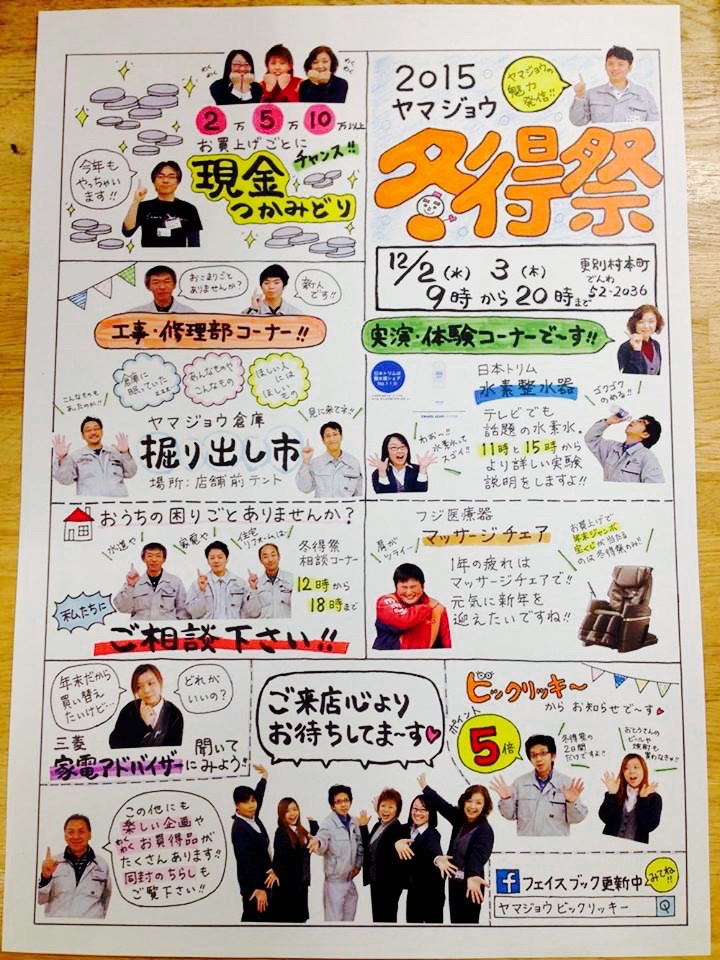 わくわく
わくわく
2万 5万 10万以上
お買上げごとに
チャンス!!
現金
つかみどり
今年も
やっちゃい
ます!!
2015
ヤマジョウ
ヤマジョウの
魅力
発信!!
冬得祭
12/2(水) 3(木)
9時から20時まで
更別村本町
でんわ
52-2036
おこまりごと
ありませんか?
新人
です!!
工事・修理部コーナー!!
こんなもの
あったのか!!
倉庫に
眠っていた
zzz
あんなものや
こんなもの
ほしい人
には
ほしい
もの
見に来てネ♪
ヤマジョウ倉庫
掘り出し市
場所:店舗前テント
実演・体験コーナーで〜す!!
日本トリムは
No.1
日本トリム
水素整水器
ゴクゴク
のめる!!
わぉ〜!!
水素水って
スゴイ!!
テレビでも
話題の水素水。
11時と15時から
より詳しい実験
説明をしますよ!!
おうちの困りごとありませんか?
水道や
家電や
住宅
リフォームは
冬得祭
相談コーナー
12時から
18時まで
私たちに
ご相談下さい!!
フジ医療器
マッサージチェア
肩が
ツライ〜
お買上げで
年末ジャンボ
宝くじが当たる
のは冬得祭のみ!!
1年の疲れは
マッサージチェアで!!
元気に新年を
迎えたいですね!!
年末だから
買い替え
たいけど…
どれが
いいの?
三菱
家電アドバイザーに聞いて
みよう♪
ご来店心より
お待ちしてま〜す♡
ビックリッキ〜
からお知らせで〜す♡
ポイント
5倍
冬得祭の
2日間
だけですよ!!
おとうさんの
ビールや
焼酎も
買わなきゃ!!
この他にも
楽しい企画や
わくわくお買得品が
たくさんあります!!
同封のちらしも
ご覧下さい!!
f フェイスブック更新中
みてね!!
ヤマジョウ ビックリッキー